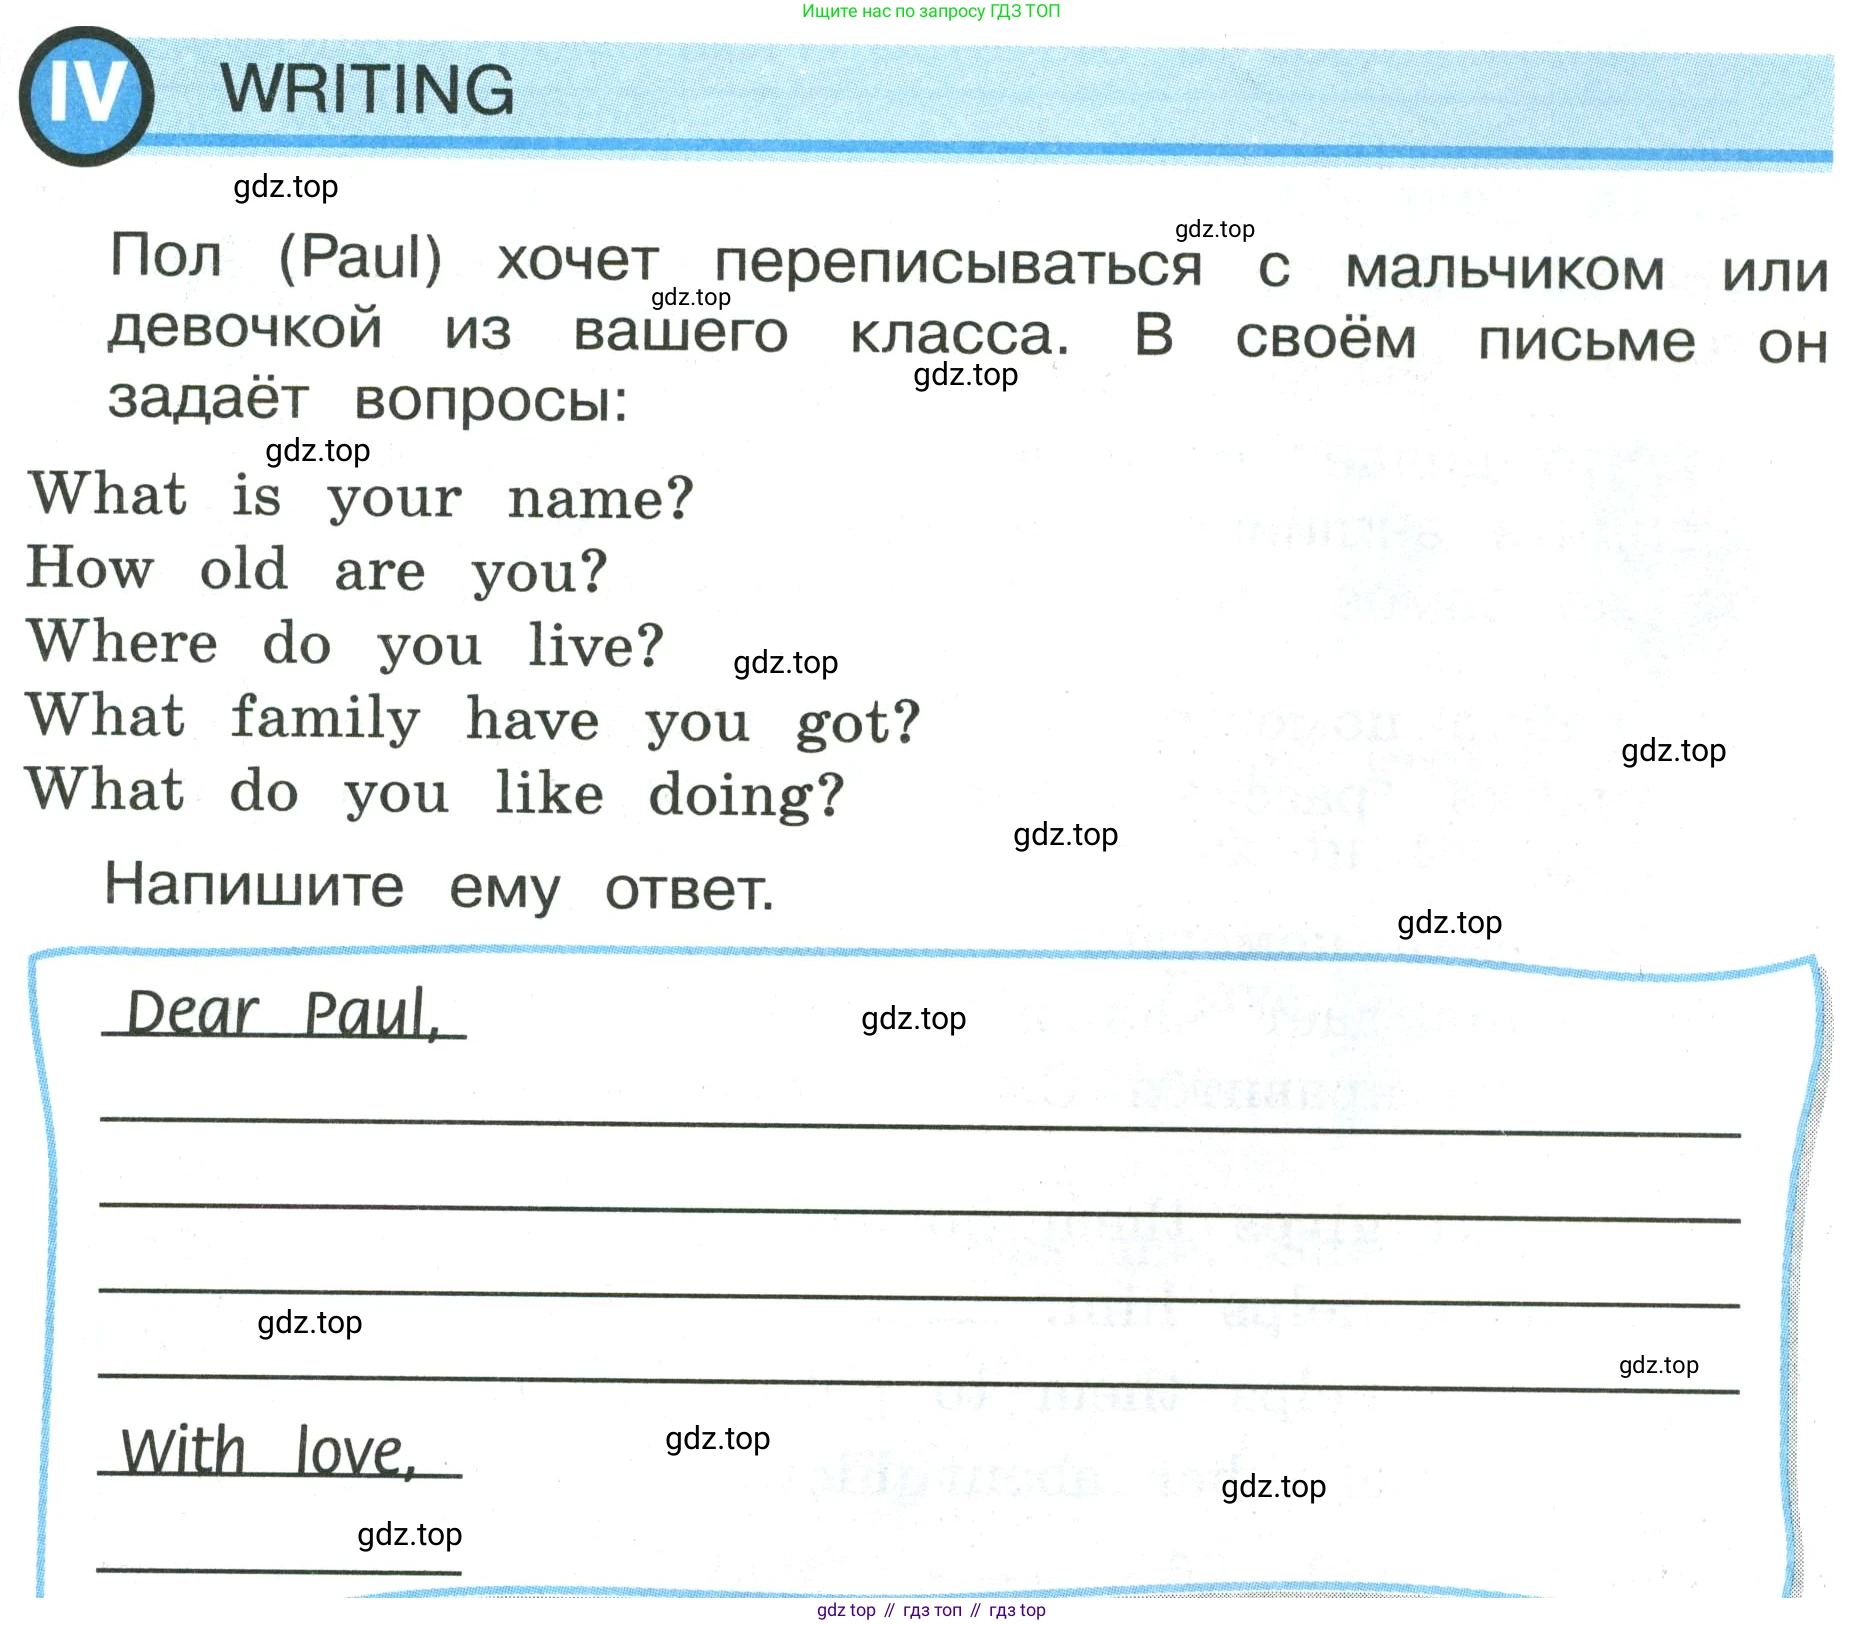 Ищите нас по запросу ГДЗ ТОП
IV WRITING
gdz.top
gdz.top
Пол (Paul) хочет переписываться с мальчиком или
gdz.top
девочкой из вашего класса. В своём письме он
gdz.top
задаёт вопросы:
gdz.top
What is your name?
How old are you?
Where do you live?
gdz.top
What family have you got?
gdz.top
What do you like doing?
gdz.top
Напишите ему ответ.
gdz.top
Dear Paul,
gdz.top
gdz.top
gdz.top
With love,
gdz.top
gdz.top
gdz.top
gdz top // гдз топ // гдз top